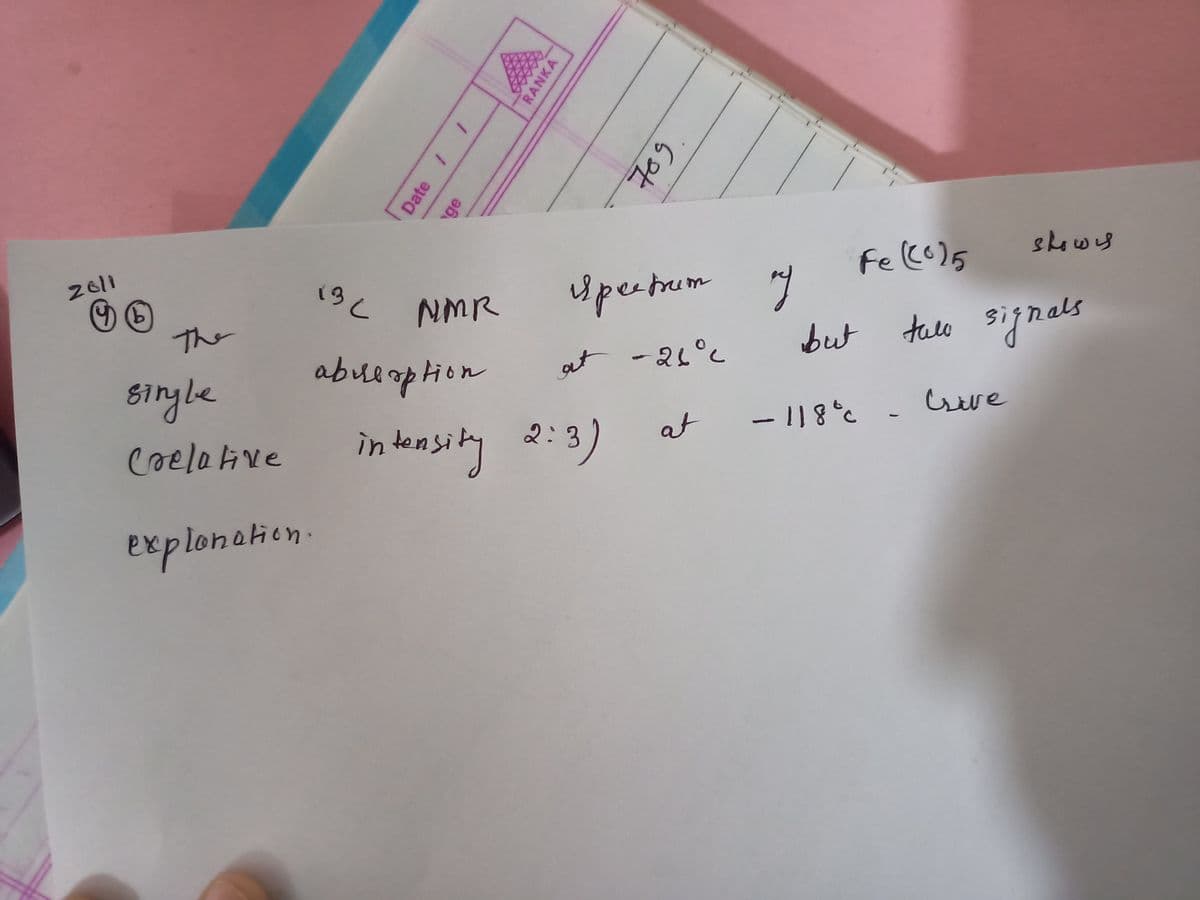 RANKA
Date / /
ge
709.
2011
(4) (b) The 13C NMR spectrum of Fe(CO)5 shows
single absorption at -26°C but two signals
(relative intensity 2:3) at -118°C. Give
explanation.